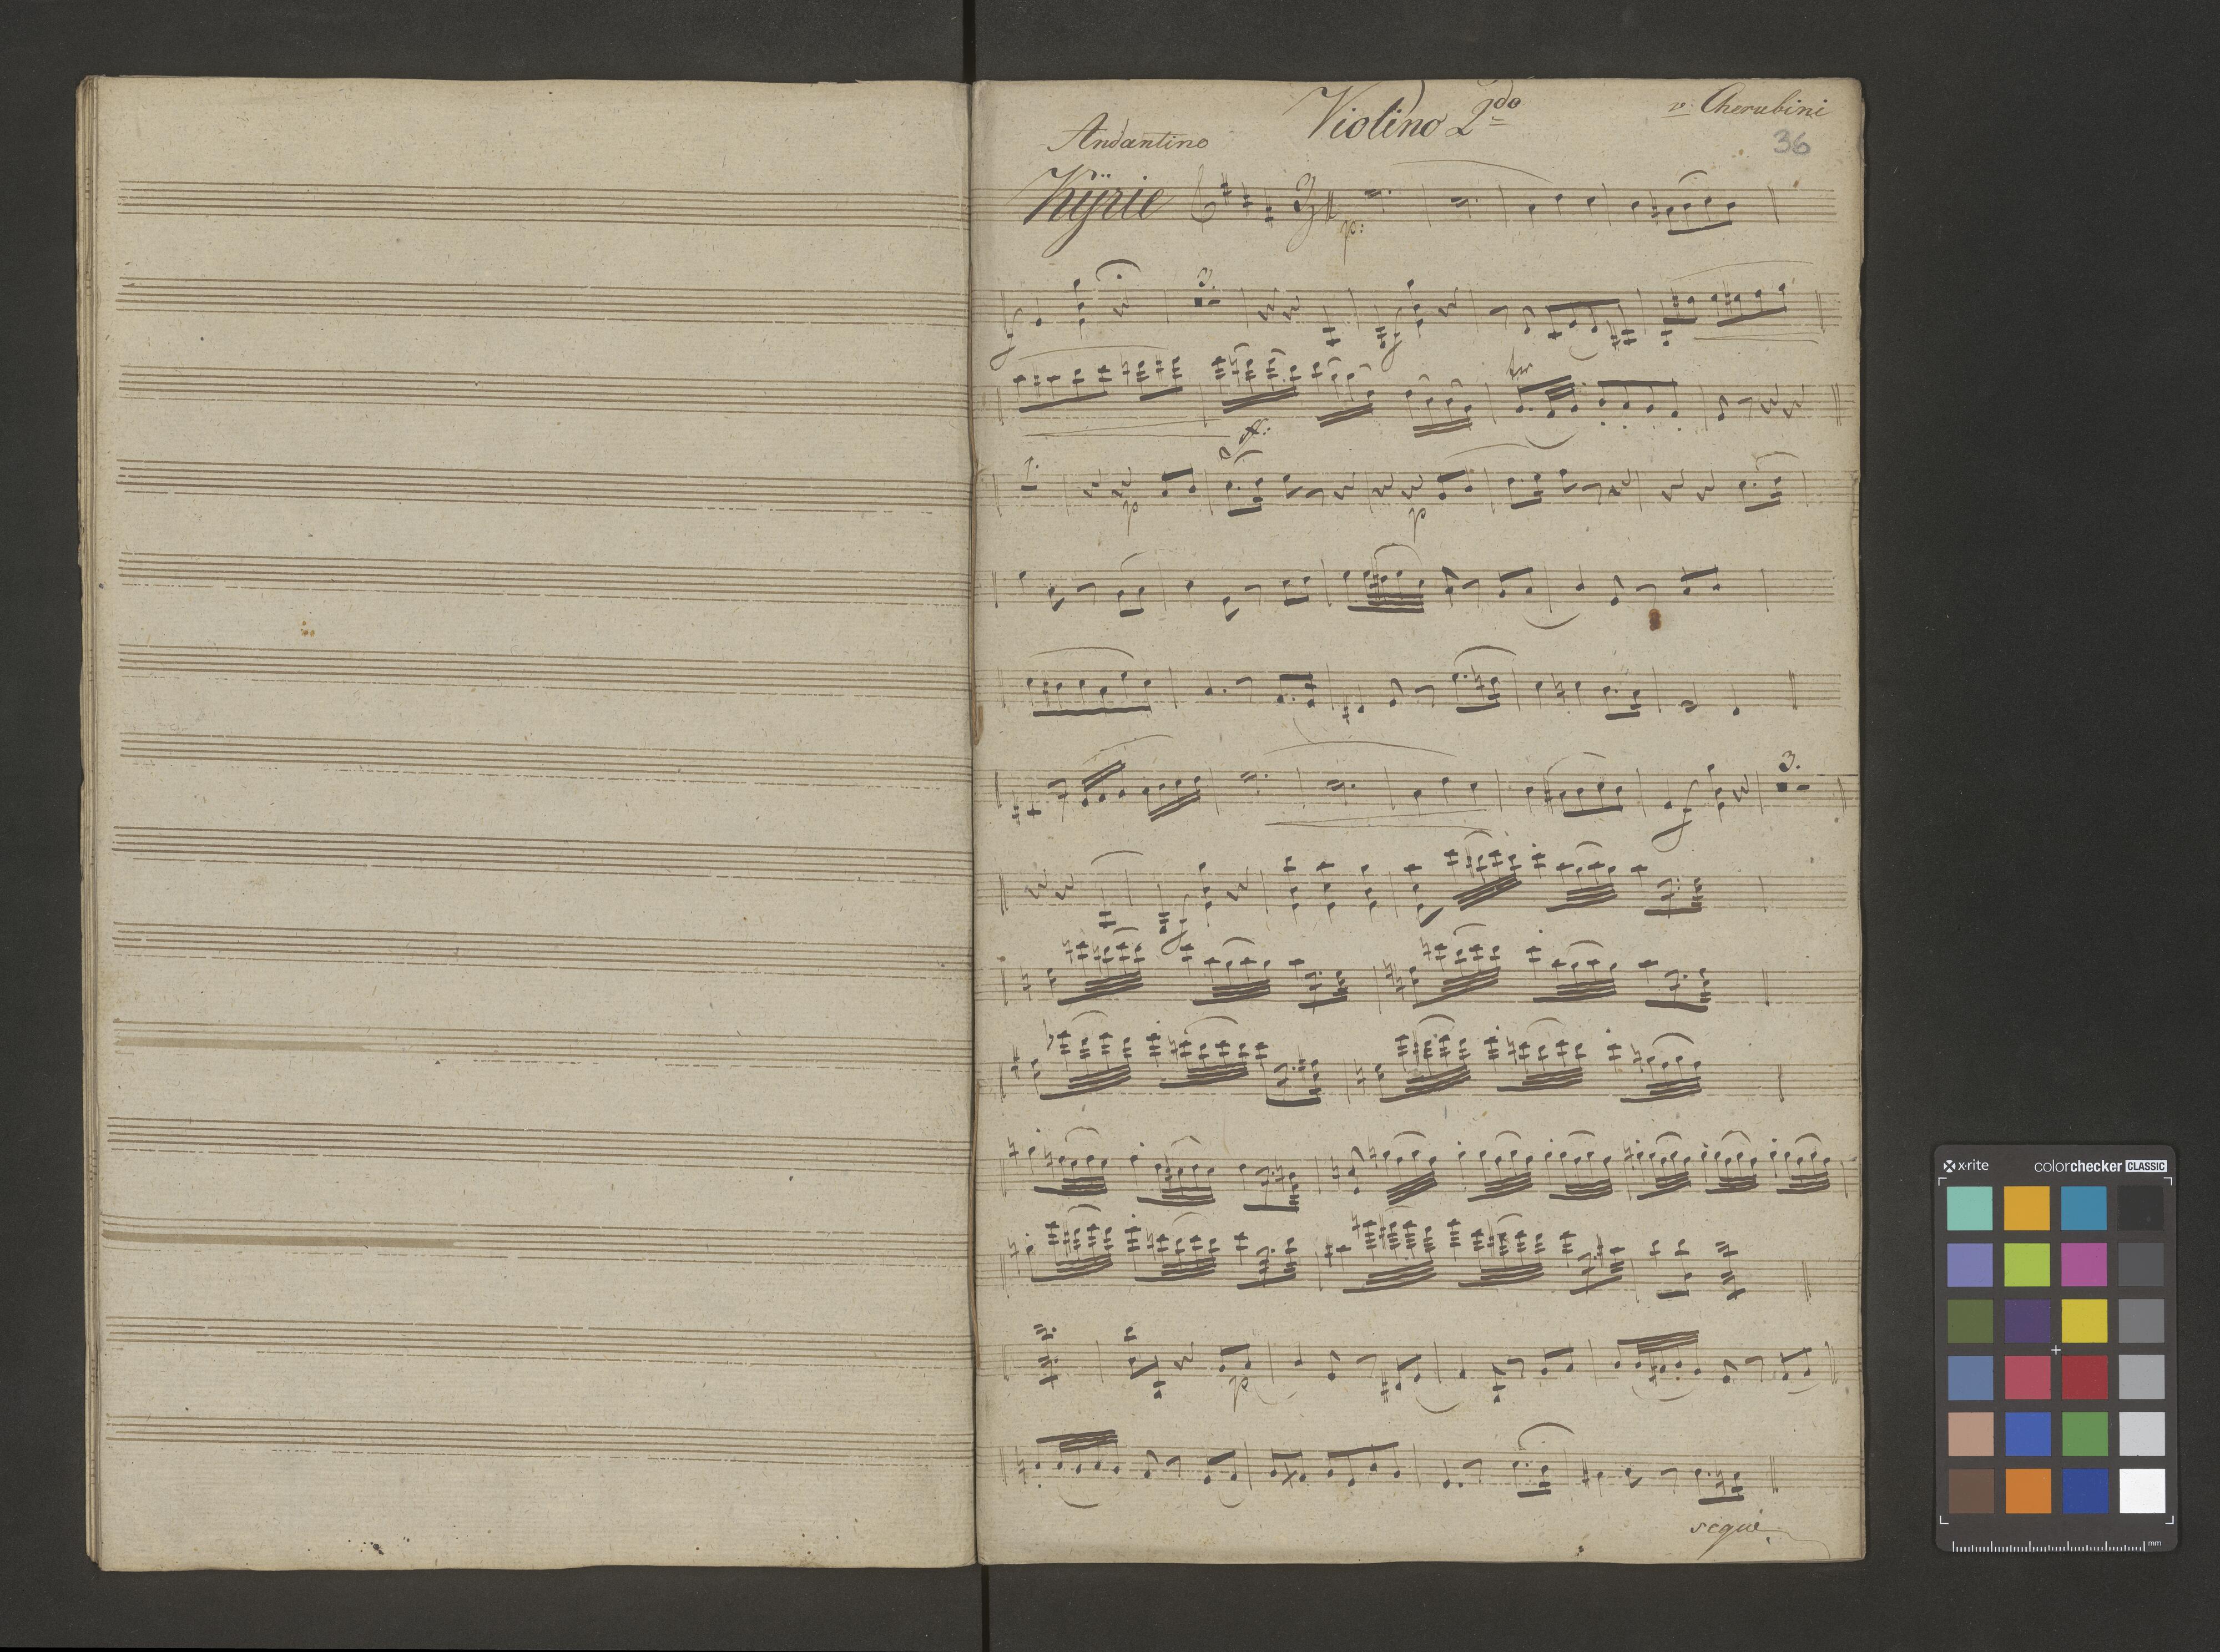 Violino 2do
v. Cherubini
36
Andantino
Kÿrie
3
p:
3.
f
f
tr
ff:
1.
p
p
f
3.
f
p
segue
x·rite
colorchecker CLASSIC
mm